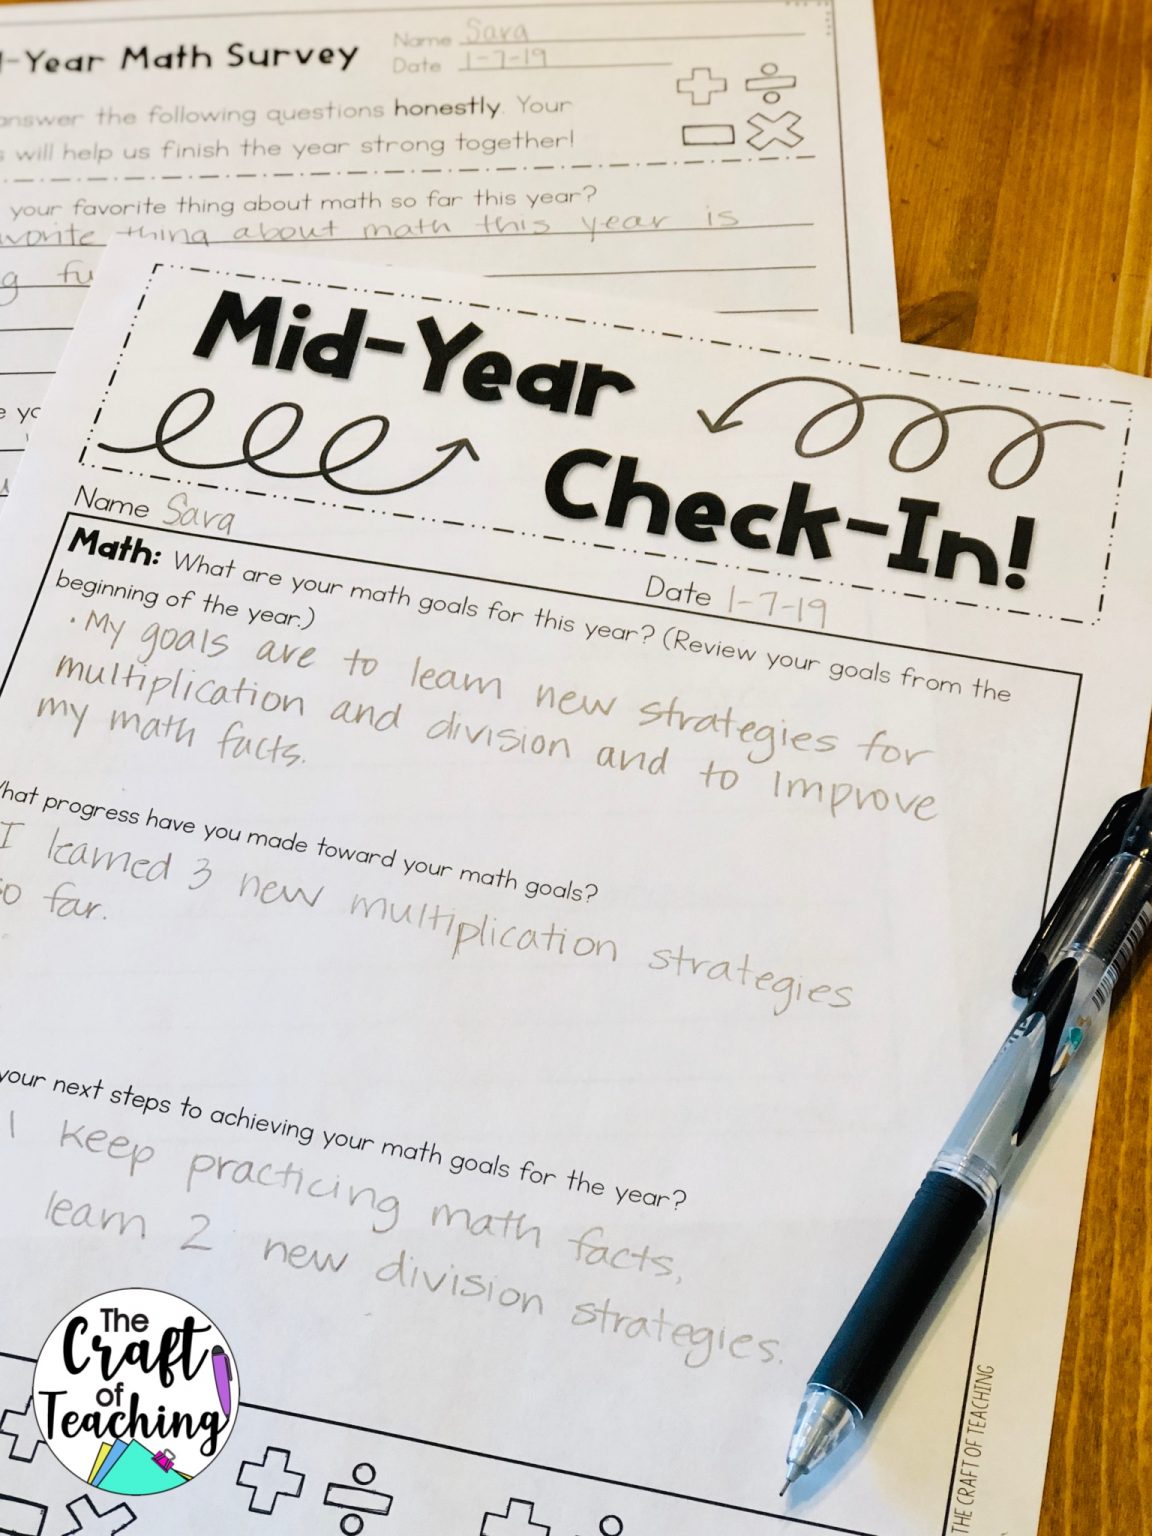 -Year Math Survey
Name Sara
Date 1-7-19
answer the following questions honestly. Your
will help us finish the year strong together!
your favorite thing about math so far this year?
avorite thing about math this year is
g fu
Mid-Year
Check-In!
Name Sara
Date 1-7-19
Math: What are your math goals for this year? (Review your goals from the
beginning of the year.)
• My goals are to learn new strategies for
multiplication and division and to improve
my math facts.
What progress have you made toward your math goals?
I learned 3 new multiplication strategies
so far.
your next steps to achieving your math goals for the year?
keep practicing math facts,
learn 2 new division strategies.
The
Craft
of
Teaching
THE CRAFT OF TEACHING